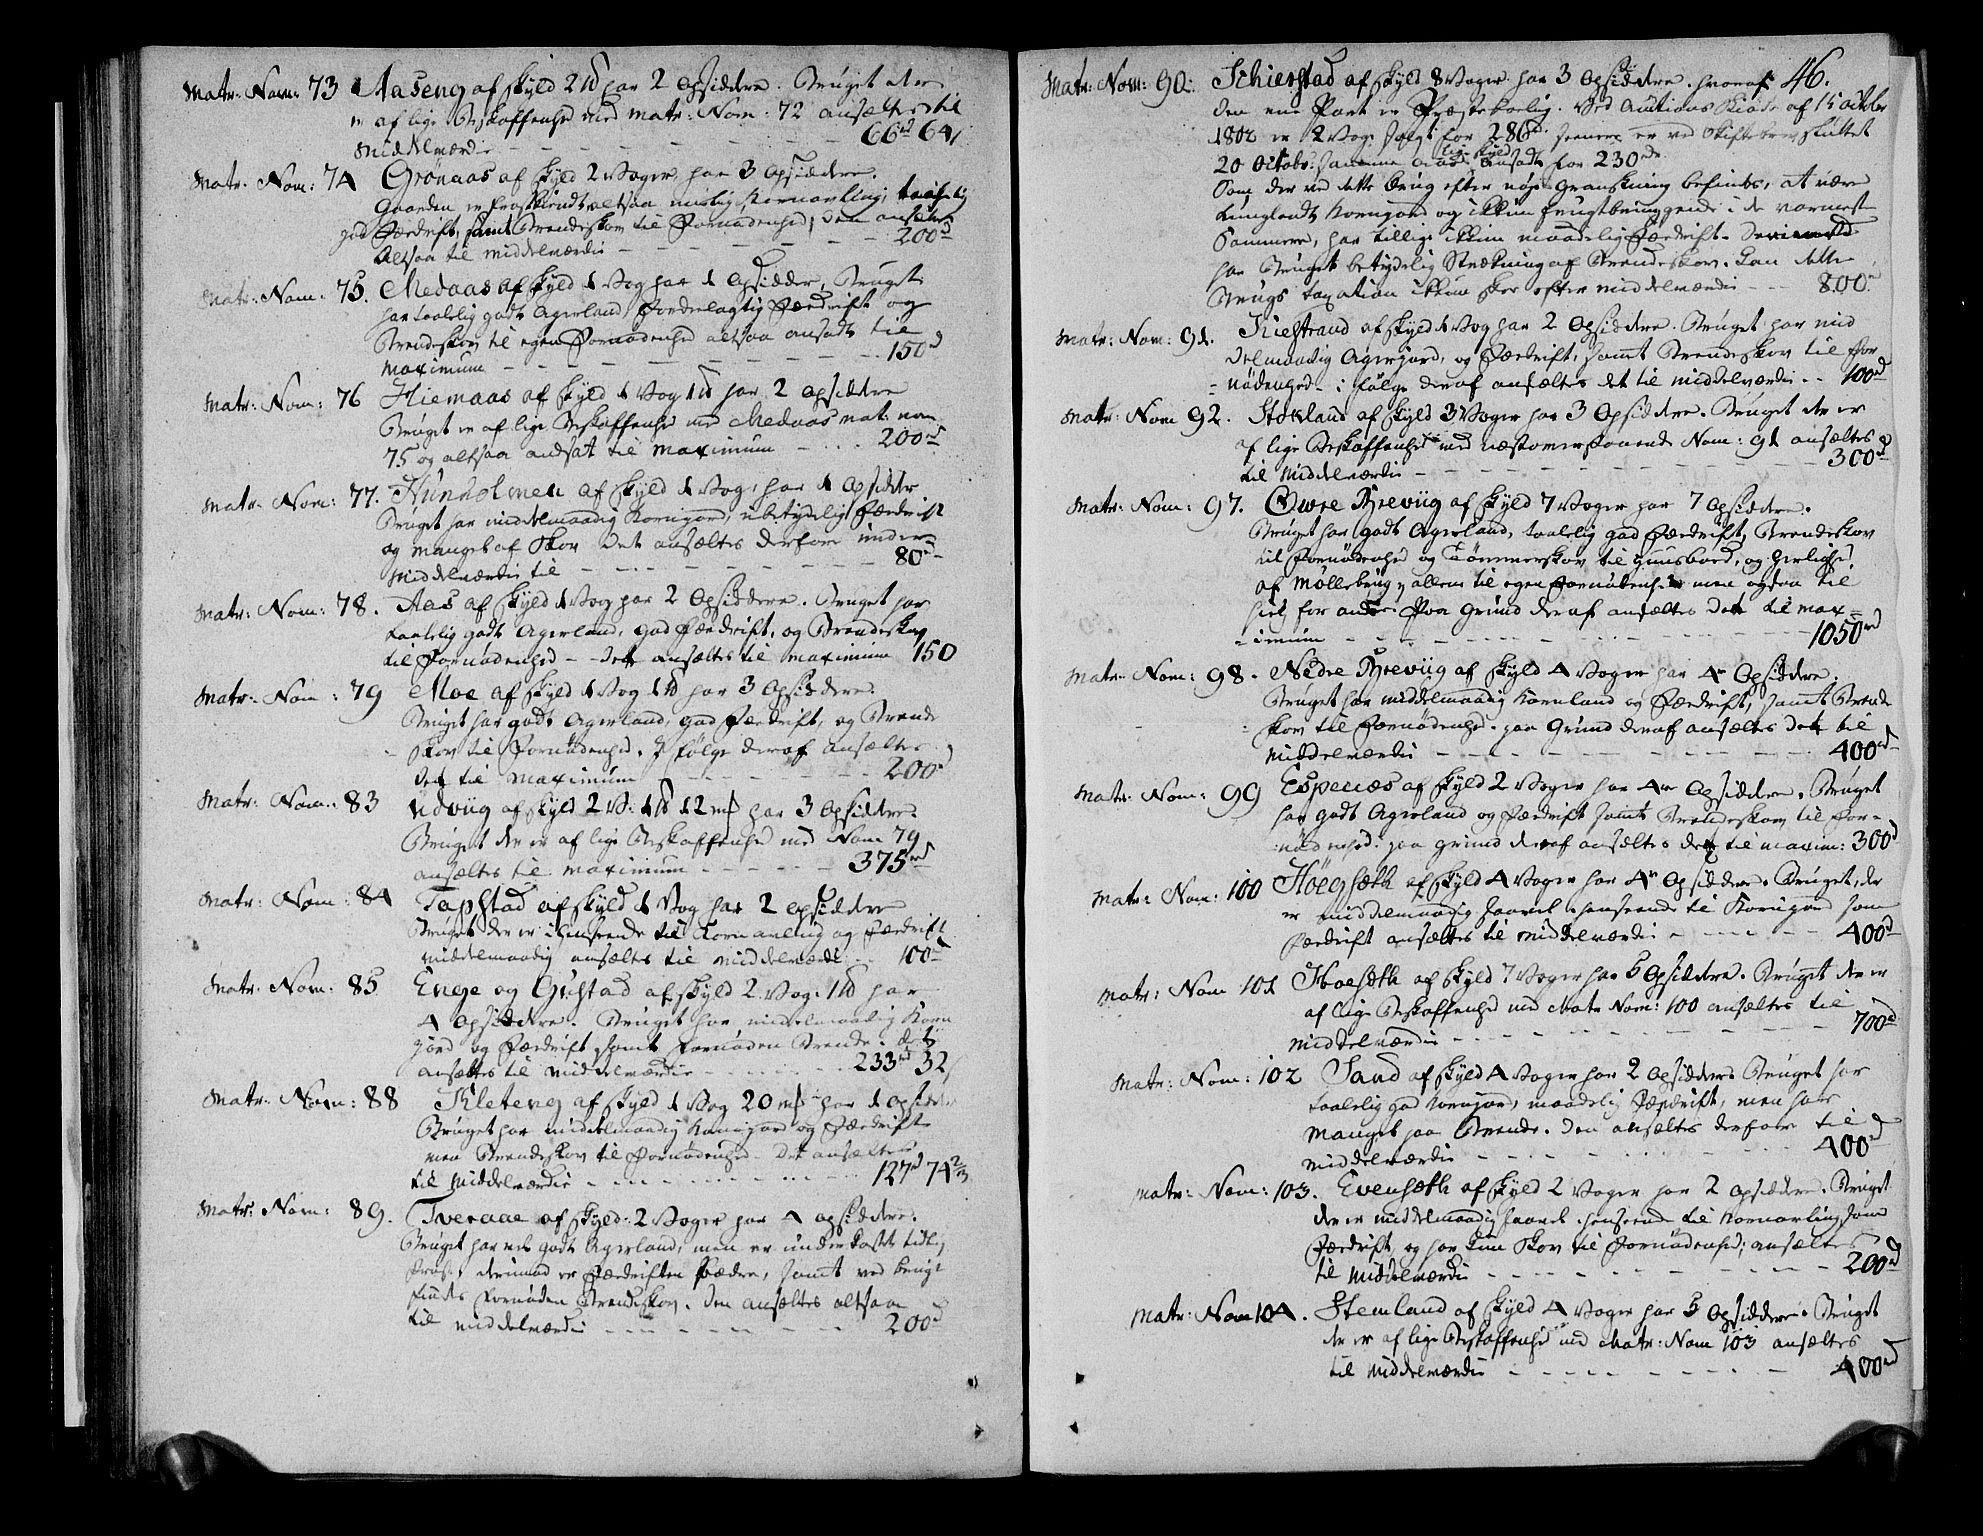 Matr: Nom: 73 Aaseng af skyld 2 ℔ har 2 Opsiddere. Bruget der
er af lige Beskaffenhed med Matr: Nom: 72 ansættes til
Middelværdie - - - 66rd 64
Matr: Nom: 74 Grönaas af skyld 2 Voger har 3 Opsiddere.
Gaarden er frostlændt altsaa mislig Kornavling; taalelig
god Fædrift, samt Brendeskov til Fornødenhed, den ansættes
altsaa til Middelværdie - - - 200rd
Matr: Nom: 75. Medaas af skyld 1 Vog har 1 Opsidder, Bruget
har taalelig godt Agerland, fordelagtig Fædrift og
Brendeskov til egen Fornødenhed altsaa ansadt til
Maximum - - - 150rd
Matr: Nom: 76 Hiemaas af skyld 1 Vog 1 ℔ har 2 Opsiddere
Bruget er af lige Beskaffenhed med Medaas Mat: Nom
75 og altsaa andsat til Maximum - - - 200rd
Matr: Nom: 77. Hunholmen af skyld 1 Vog, har 1 Opsidder
Bruget har middelmaadig Kornjord, ubetydelig Fædrift
og Mangel af Skov det ansættes derfore under
Middelværdie til - - - 80rd
Matr: Nom: 78. Aas af skyld 1 Vog har 2 Opsiddere. Bruget har
taalelig godt Agerland, god Fædrift, og Brendeskov
til Fornødenhed - Det ansættes til Maximum 150
Matr: Nom: 79 Moe af skyld 1 Vog 1 ℔ har 3 Opsiddere.
Bruget har godt Agerland, god Fædrift, og Brende
skov til Fornødenhed. I følge deraf ansættes
det til Maximum - - - 200rd
Matr: Nom: 83 Udviig af skyld 2 V: 1 ℔ 12 mk har 3 Opsiddere.
Bruget der er af lige Beskaffenhed med Nom 79
ansættes til Maximum - - - 375rd
Matr: Nom: 84 Tapstad af skyld 1 Vog har 2 opsiddere
Bruget der er i Henseende til Kornavling og Fædrift
middelmaadig ansættes til Middelværdi - - 100rd
Matr: Nom: 85 Enge og Gustad af skyld 2 Vog: 1 ℔ har
4 Opsiddere. Bruget har middelmaadig Korn
jord og Fædrift, samt Fornøden Brende. det
ansættes til Middelværdie - - - 233rd 32
Matr: Nom: 88 Kleteng af skyld 1 Vog 20 mk har 1 Opsidder
Bruget har middelmaadig Kornjord og Fædrift
men Brendeskov til Fornødenhed - Det ansættes
til Middelværdie - - - 127rd 74 2/3
Matr: Nom: 89. Tveraae af skyld: 2 Voger har 4 opsiddere.
Bruget har vel godt Agerland, men er underkastet tidlig
Frost, derimod er Fædriften bædre, samt ved Bruget
findes Fornøden Brendeskov. Den ansættes altsaa
til Middelværdie - - - 200rd
46.
Matr: Nom: 90: Schierstad af skyld 8 Voger har 3 Opsiddere. hvoraf
den ene Part er Præstebolig. Ved Auctions Skiøde af 15 October
1802 er 2 Vog: solgt for 286rd senere er ved Skiftebrev sluttet
20 Octobr: samme Aar lige skyld ansadt for 230rd
Som der ved dette Brug efter nøje Granskning befindes, at være
Kuuglandt Kornjord og ikkun frugtbringende i de varmeste
Sommere, har tillige ikkun maadelig Fædrift - Derimod
har Bruget betydelig Strækning af Brendeskov. Kan dette
Brugs taxation ikkun skee efter Middelværdie - - - 800rd
Matr: Nom: 91. Kiestrand af skyld 1 Vog har 2 Opsiddere. Bruget har mid
delmaadig Agerjord, og Fædrift, samt Brendeskov til For
nødenhed - i følge deraf ansættes det til Middelværdie - - 100rd
Matr: Nom 92. Stokland af skyld 3 Voger har 3 Opsiddere. Bruget der er
af lige Beskaffenhed med næstoverstaaende Nom: 91 ansættes
til Middelværdie - - - 300rd
Matr: Nom: 97. Øwre Breviig af skyld 7 Voger har 7 Opsiddere.
Bruget har godt Agerland, taalelig god Fædrift, Brendeskov
til Fornødenhed og Tømmerskov til Huusbord, og Herlighed
af Møllebrug, ej allene til egen Fornødenhed men ogsaa til
Hielp for andre. Paa Grund deraf ansættes det til Max-
imum - - - 1050rd
Matr: Nom: 98. Nedre Breviig af skyld 4 Voger har 4r Opsiddere.
Bruget har middelmaadig Kornland og Fædrift, samt Brende
skov til Fornødenhed. paa Grund deraf ansættes det til
Middelværdie - - - 400rd
Matr: Nom: 99 Espenæs af skyld 2 Voger har 4re Opsiddere. Bruget
har godt Agerland og Fædrift samt Brendeskov til For-
nødenhed: paa Grund deraf ansættes det til Maxim: 300rd
Matr: Nom: 100 Höegsæth af skyld 4 Voger har 4r Opsiddere. Bruget, der
er middelmaadig saavel i Henseende til Kornjord som
Fædrift ansættes til Middelværdie - - - 400rd
Matr: Nom 101 Hoesæth af skyld 7 Voger har 5 Opsiddere. Bruget der er
af lige Beskaffenhed med Matr Nom: 100 ansættes til
Middelværdie - - - 700rd
Matr: Nom: 102 Sand af skyld 4 Voger har 2 Opsiddere Bruget har
taalelig god Kornjord, maadelig Fædrift, men har
Mangel paa Brende. Den ansættes derfore til
Middelværdie - - - 400rd
Matr: Nom: 103. Evensæth af skyld 2 Voger har 2 Opsiddere. Bruget
der er middelmaadig saavel i Henseende til Kornavling som
Fædrift, og har kun Skov til Fornødenhed; ansættes
til Middelværdie - - - 200rd
Matr: Nom 104. Stemland af skyld 4 Voger har 5 Opsiddere. Bruget
der er af lige Beskaffenhed med Matr: Nom 103 ansættes
til Middelværdie - - - 400rd